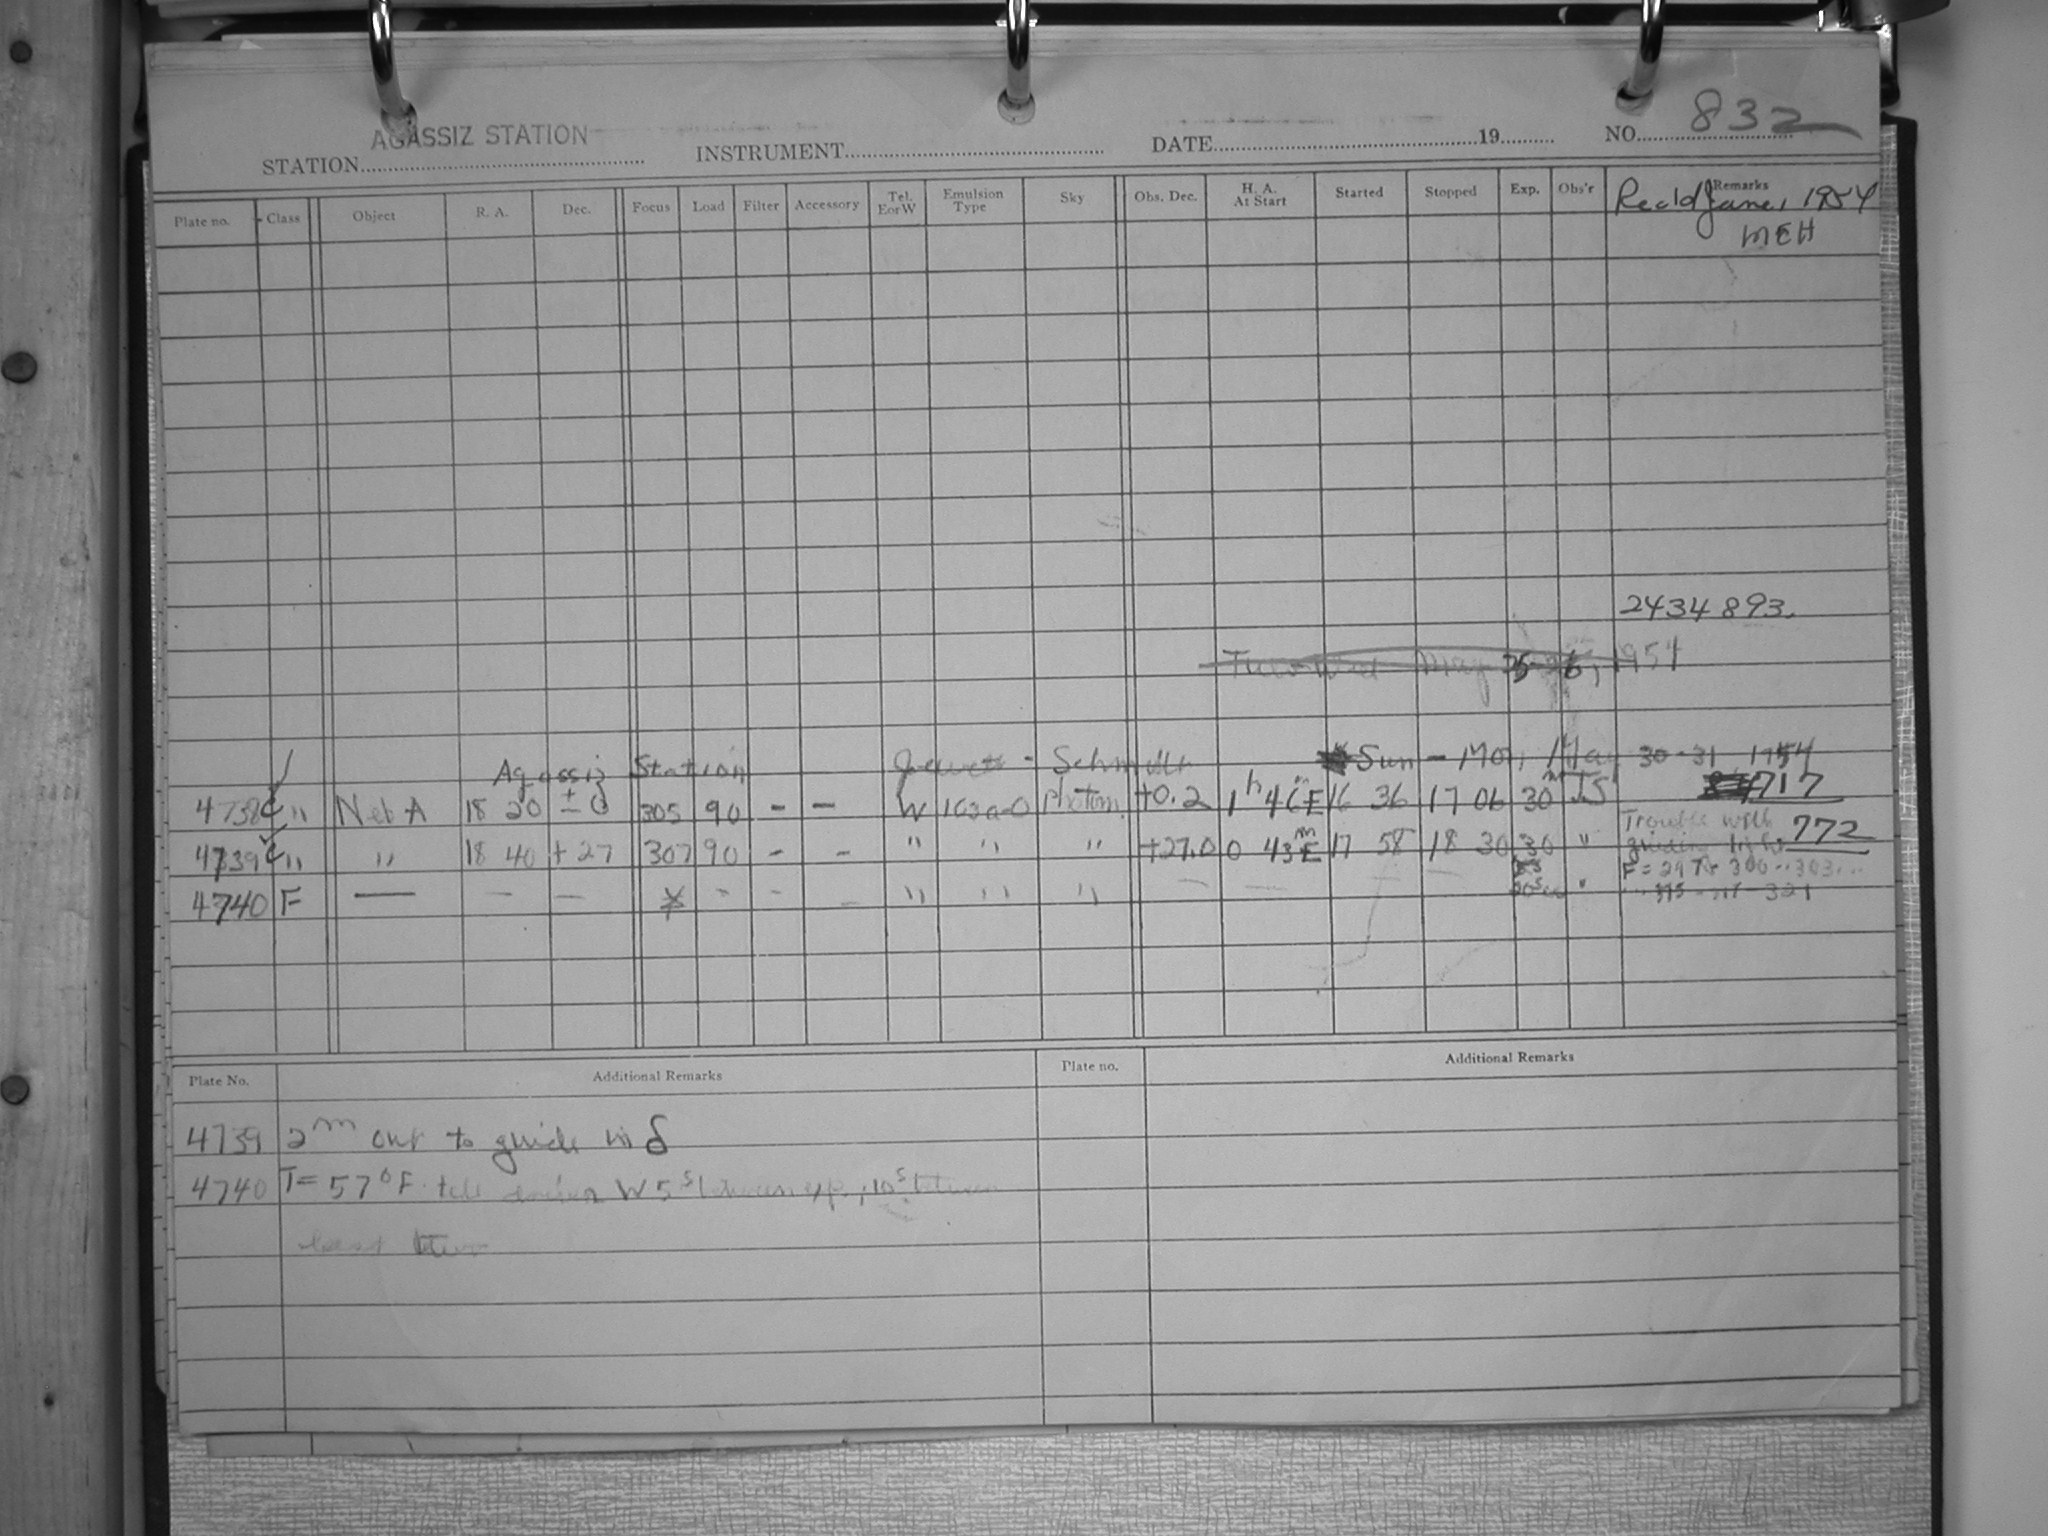 832
AGASSIZ STATION
STATION INSTRUMENT DATE 19 NO.
Plate no. Class Object R. A. Dec. Focus Load Filter Accessory Tel. EorW Emulsion Type Sky Obs. Dec. H. A. At Start Started Stopped Exp. Obs'r Remarks
Rec'd June 1 1954
MEH
2434893.
May 25-26, 1954
Agassiz Station Jewett - Schmidt Sun - Mon, May 30-31 1954
4738 C " Neb A 18 20 ± 0 305 90 - - W 103a-O +0.2 1h 46 E 16 36 17 06 30m JS 717
4739 C " " 18 40 + 27 307 90 - - " " " +27.0 0 43m E 17 58 18 30 30 " Trouble with guiding 772
4740 F — - — - - - " " " — — — — " F = 297 300 303
321
Plate No. Additional Remarks Plate no. Additional Remarks
4739 2m out to guide in δ
4740 T = 57°F W 5s between exp., 10s between
last two